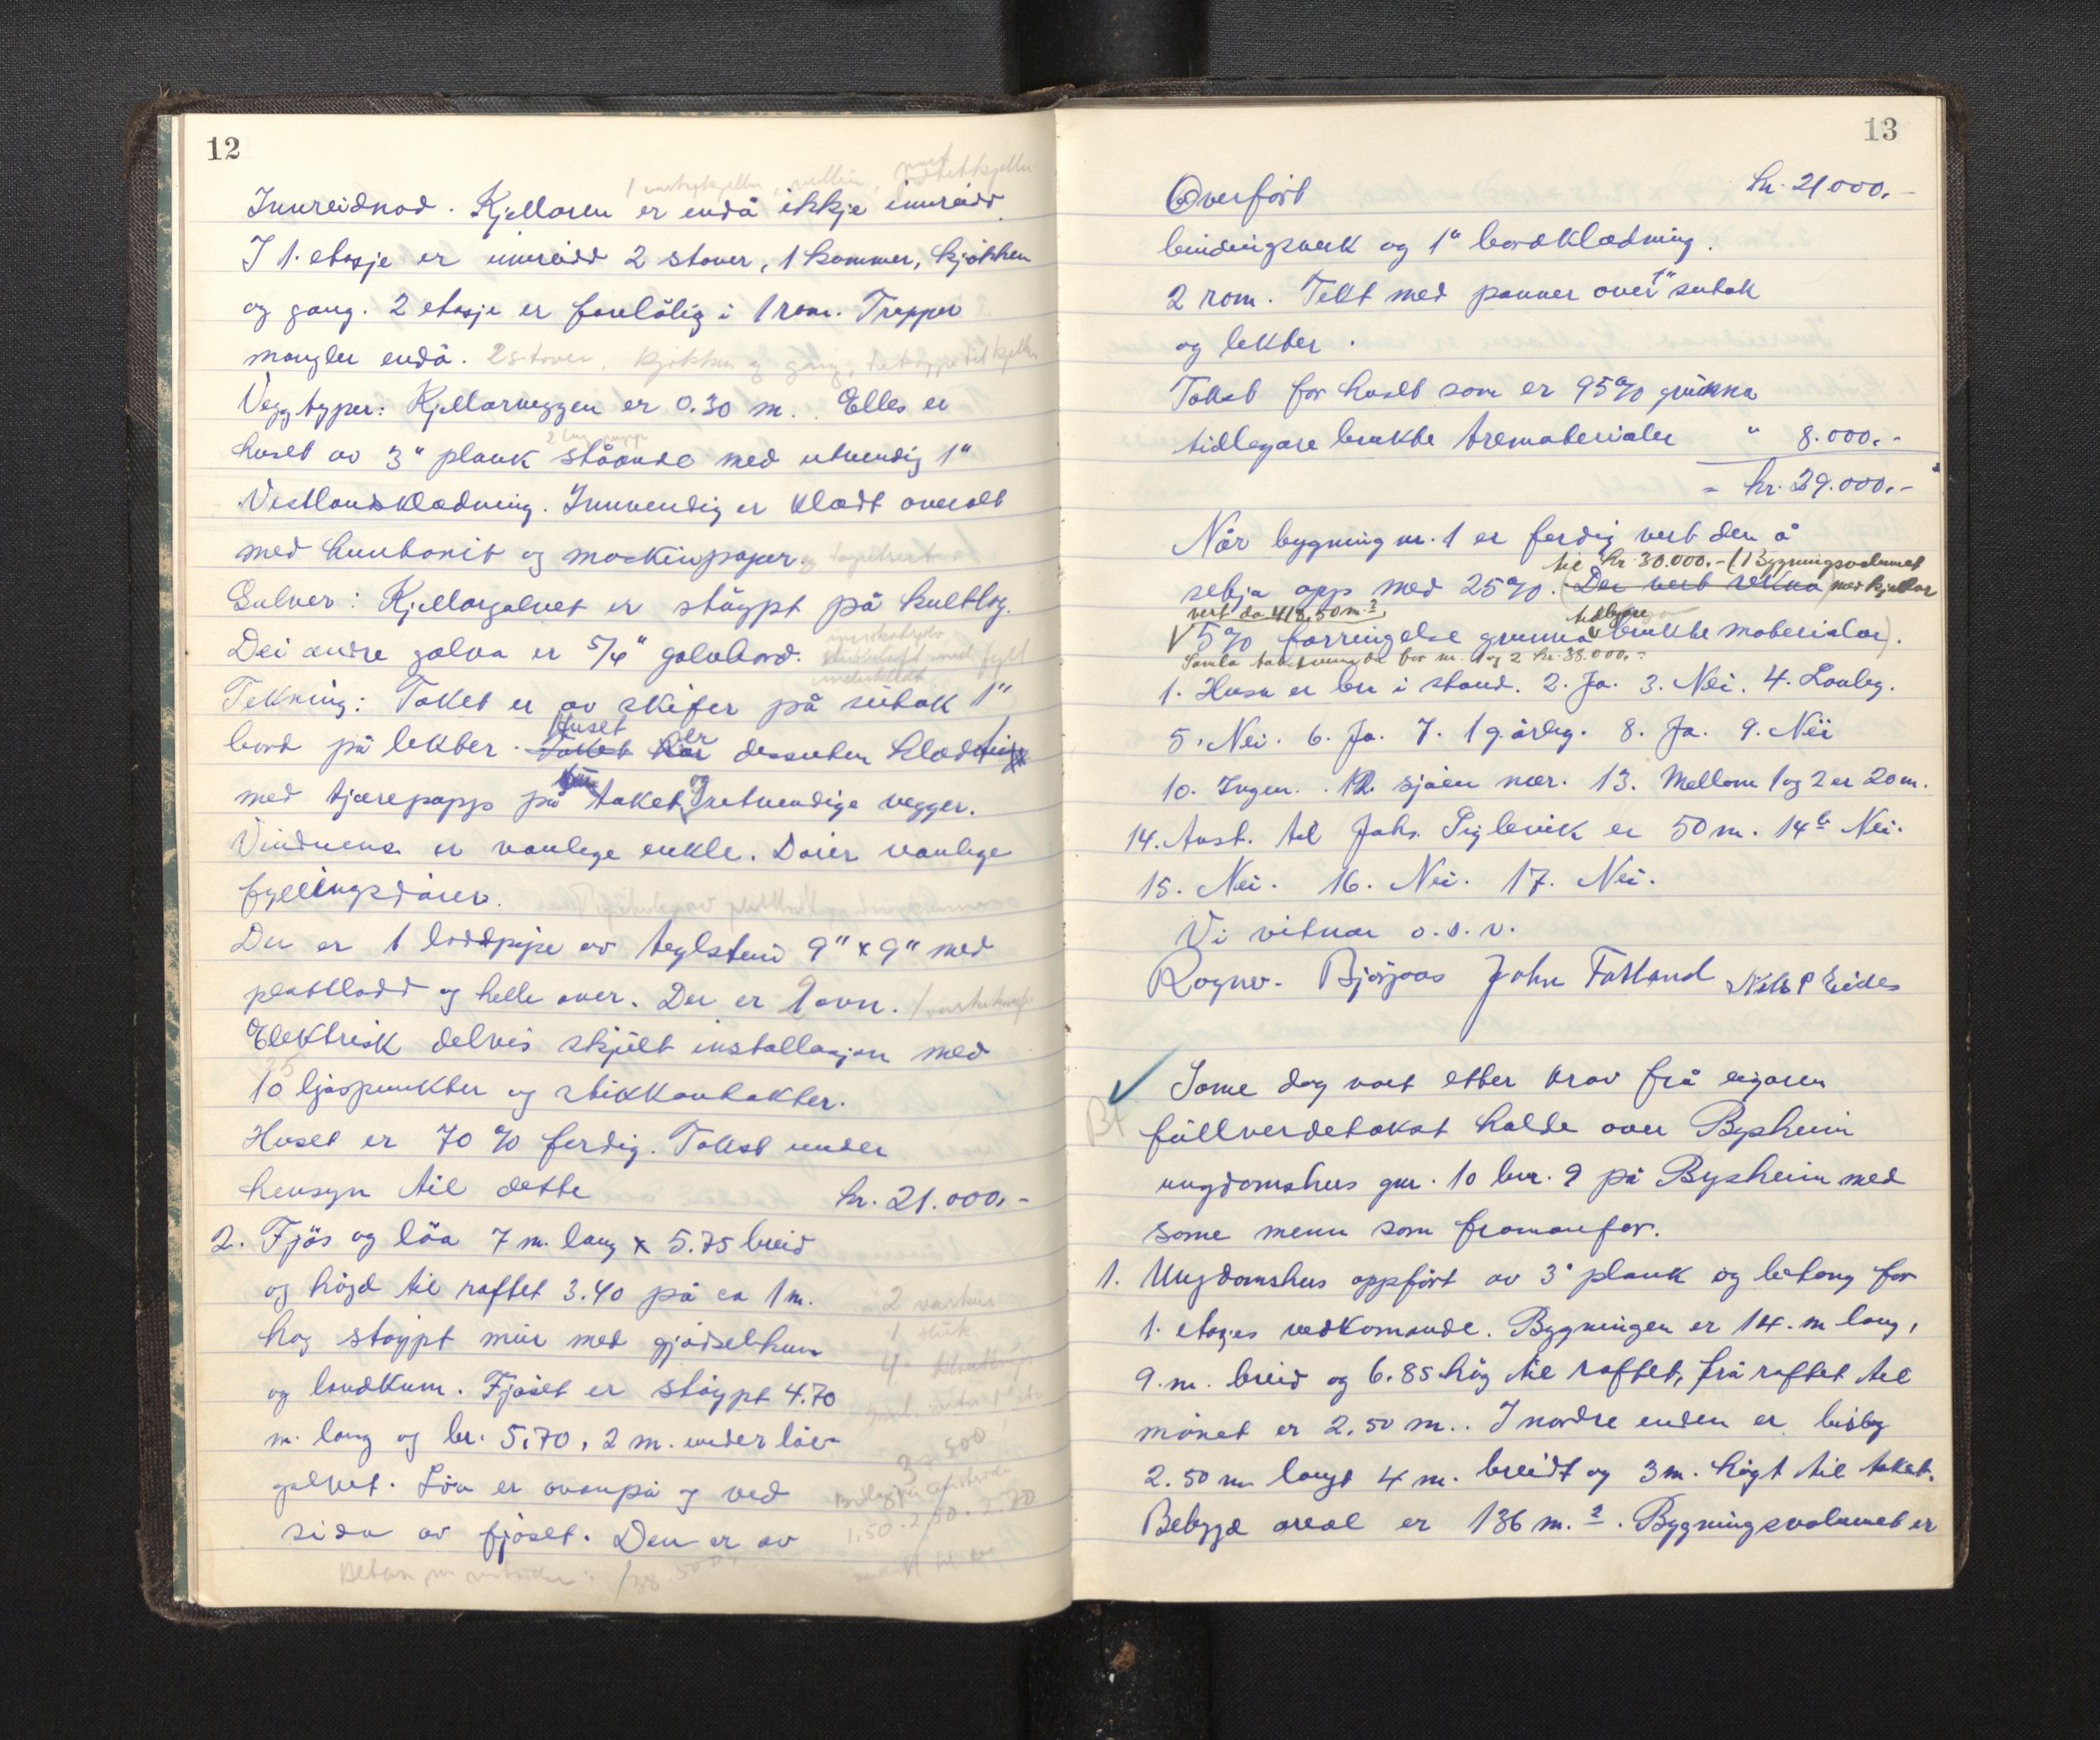 12
Innreidnad. Kjellaren er endå ikkje innreidd.
I 1. etasje er innreidd 2 stover, 1 kammer, kjøkken
og gang. 2 etasje er foreløbig i 1 rom. Trapper
mangler endå. 2 stover, kjøkken og gang,
Veggtyper: Kjellarveggen er 0.30 m. Elles er
huset av 3" plank ståande med utvendig 1"
Vestlandskledning. Innvendig er kledt overalt
med huntonit og maskinpaper.
Golver: Kjellargolvet er støypt på kultlag.
Dei andre golva er 5/4" golvbord.
Tekning: Taket er av skifer på sutak 1"
bord på lekter. Huset er dessuten kledt
med tjærepapp på taket og utvendige vegger.
Vinduene er vanlege enkle. Dører vanlege
fyllingsdører.
Der er 1 loddpipe av teglstein 9" x 9" med
plattlodd og helle over. Der er 1 ovn.
Elektrisk delvis skjult installasjon med
10 ljospunkter og stikkontakter.
Huset er 70 % ferdig. Takst under
hensyn til dette kr. 21.000,-
2. Fjøs og løa 7 m. lang x 5.75 breid
og høgd til raftet 3.40 på ca 1 m.
høg støypt mur med gjødselkum
og landkum. Fjøset er støypt 4.70
m. lang og br. 5.70, 2 m. under løe-
golvet. Løa er ovanpå og ved
sida av fjøset. Den er av
13
Overført kr. 21.000,-
bindingsverk og 1" bordkledning.
2 rom. Tekt med panner over 1" sutak
og lekter.
Takst for huset som er 95% grunna
tidlegare brukte trematerialer " 8.000,-
= kr. 29.000,-
Når bygning nr. 1 er ferdig vert den å
til kr. 30.000,- (Bygningsvolumet
setja opp med 25%. Der vert rekna med kjellar
vert da 418,50 m.²
5% forringelse grunna tidlegare brukte materialer).
Samla takstsum da for nr. 1 og 2 kr. 38.000,-
1. Husa er bra i stand. 2. Ja. 3. Nei. 4. Lovleg.
5. Nei. 6. Ja. 7. 1 g. årleg. 8. Ja. 9. Nei
10. Ingen. 12. sjøen nær. 13. Mellom 1 og 2 er 20 m.
14. Avst. til Johs. Teglevik er 50 m. 14 b Nei.
15. Nei. 16. Nei. 17. Nei.
Vi vitnar o.s.v.
Ragnv. Bjørjoas John Fatland Nils P Eides
Same dag vart etter krav frå eigaren
fullverdetakst halde over Bysheim
ungdomshus gnr. 10 bnr. 9 på Bysheim med
same menn som framanfor.
1. Ungdomshus oppført av 3" plank og betong for
1. etasjes vedkomande. Bygningen er 14. m lang,
9. m. breid og 6.85 høg til raftet, frå raftet til
mønet er 2.50 m.. I nordre enden er bisleg
2.50 m langt 4 m. breidt og 3 m. høgt til taket.
Bebygd areal er 136 m.². Bygningsvolumet er